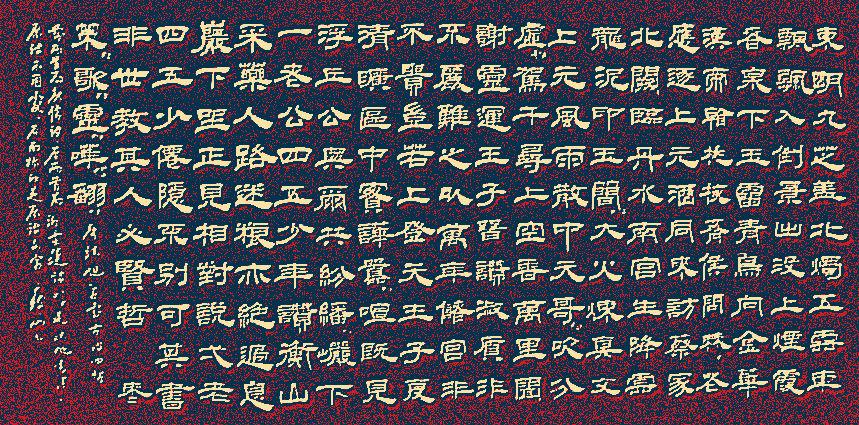 東明九芝蓋北燭五雲車
飄颻入倒景出沒上煙霞
春泉下玉霤青鳥向金華
漢帝看桃核齊侯問棗花
應逐上元酒同來訪蔡家
北闕臨丹水南宮生絳雲
龍泥印玉簡大火煉真文
上元風雨散中天哥吹分
虛駕千尋上空香萬里聞
謝靈運王子晉讚淑質非
不麗難之以萬年儲宮非
不貴豈若上登天王子愛
清曠區中實譁囂喧既見
浮丘公與爾共紛繙巖下
一老公四五少年讚衡山
采藥人路迷糧亦絕過息
巖下坐正見相對說一老
四五少僊隱不別可其書
非世教其人必賢哲